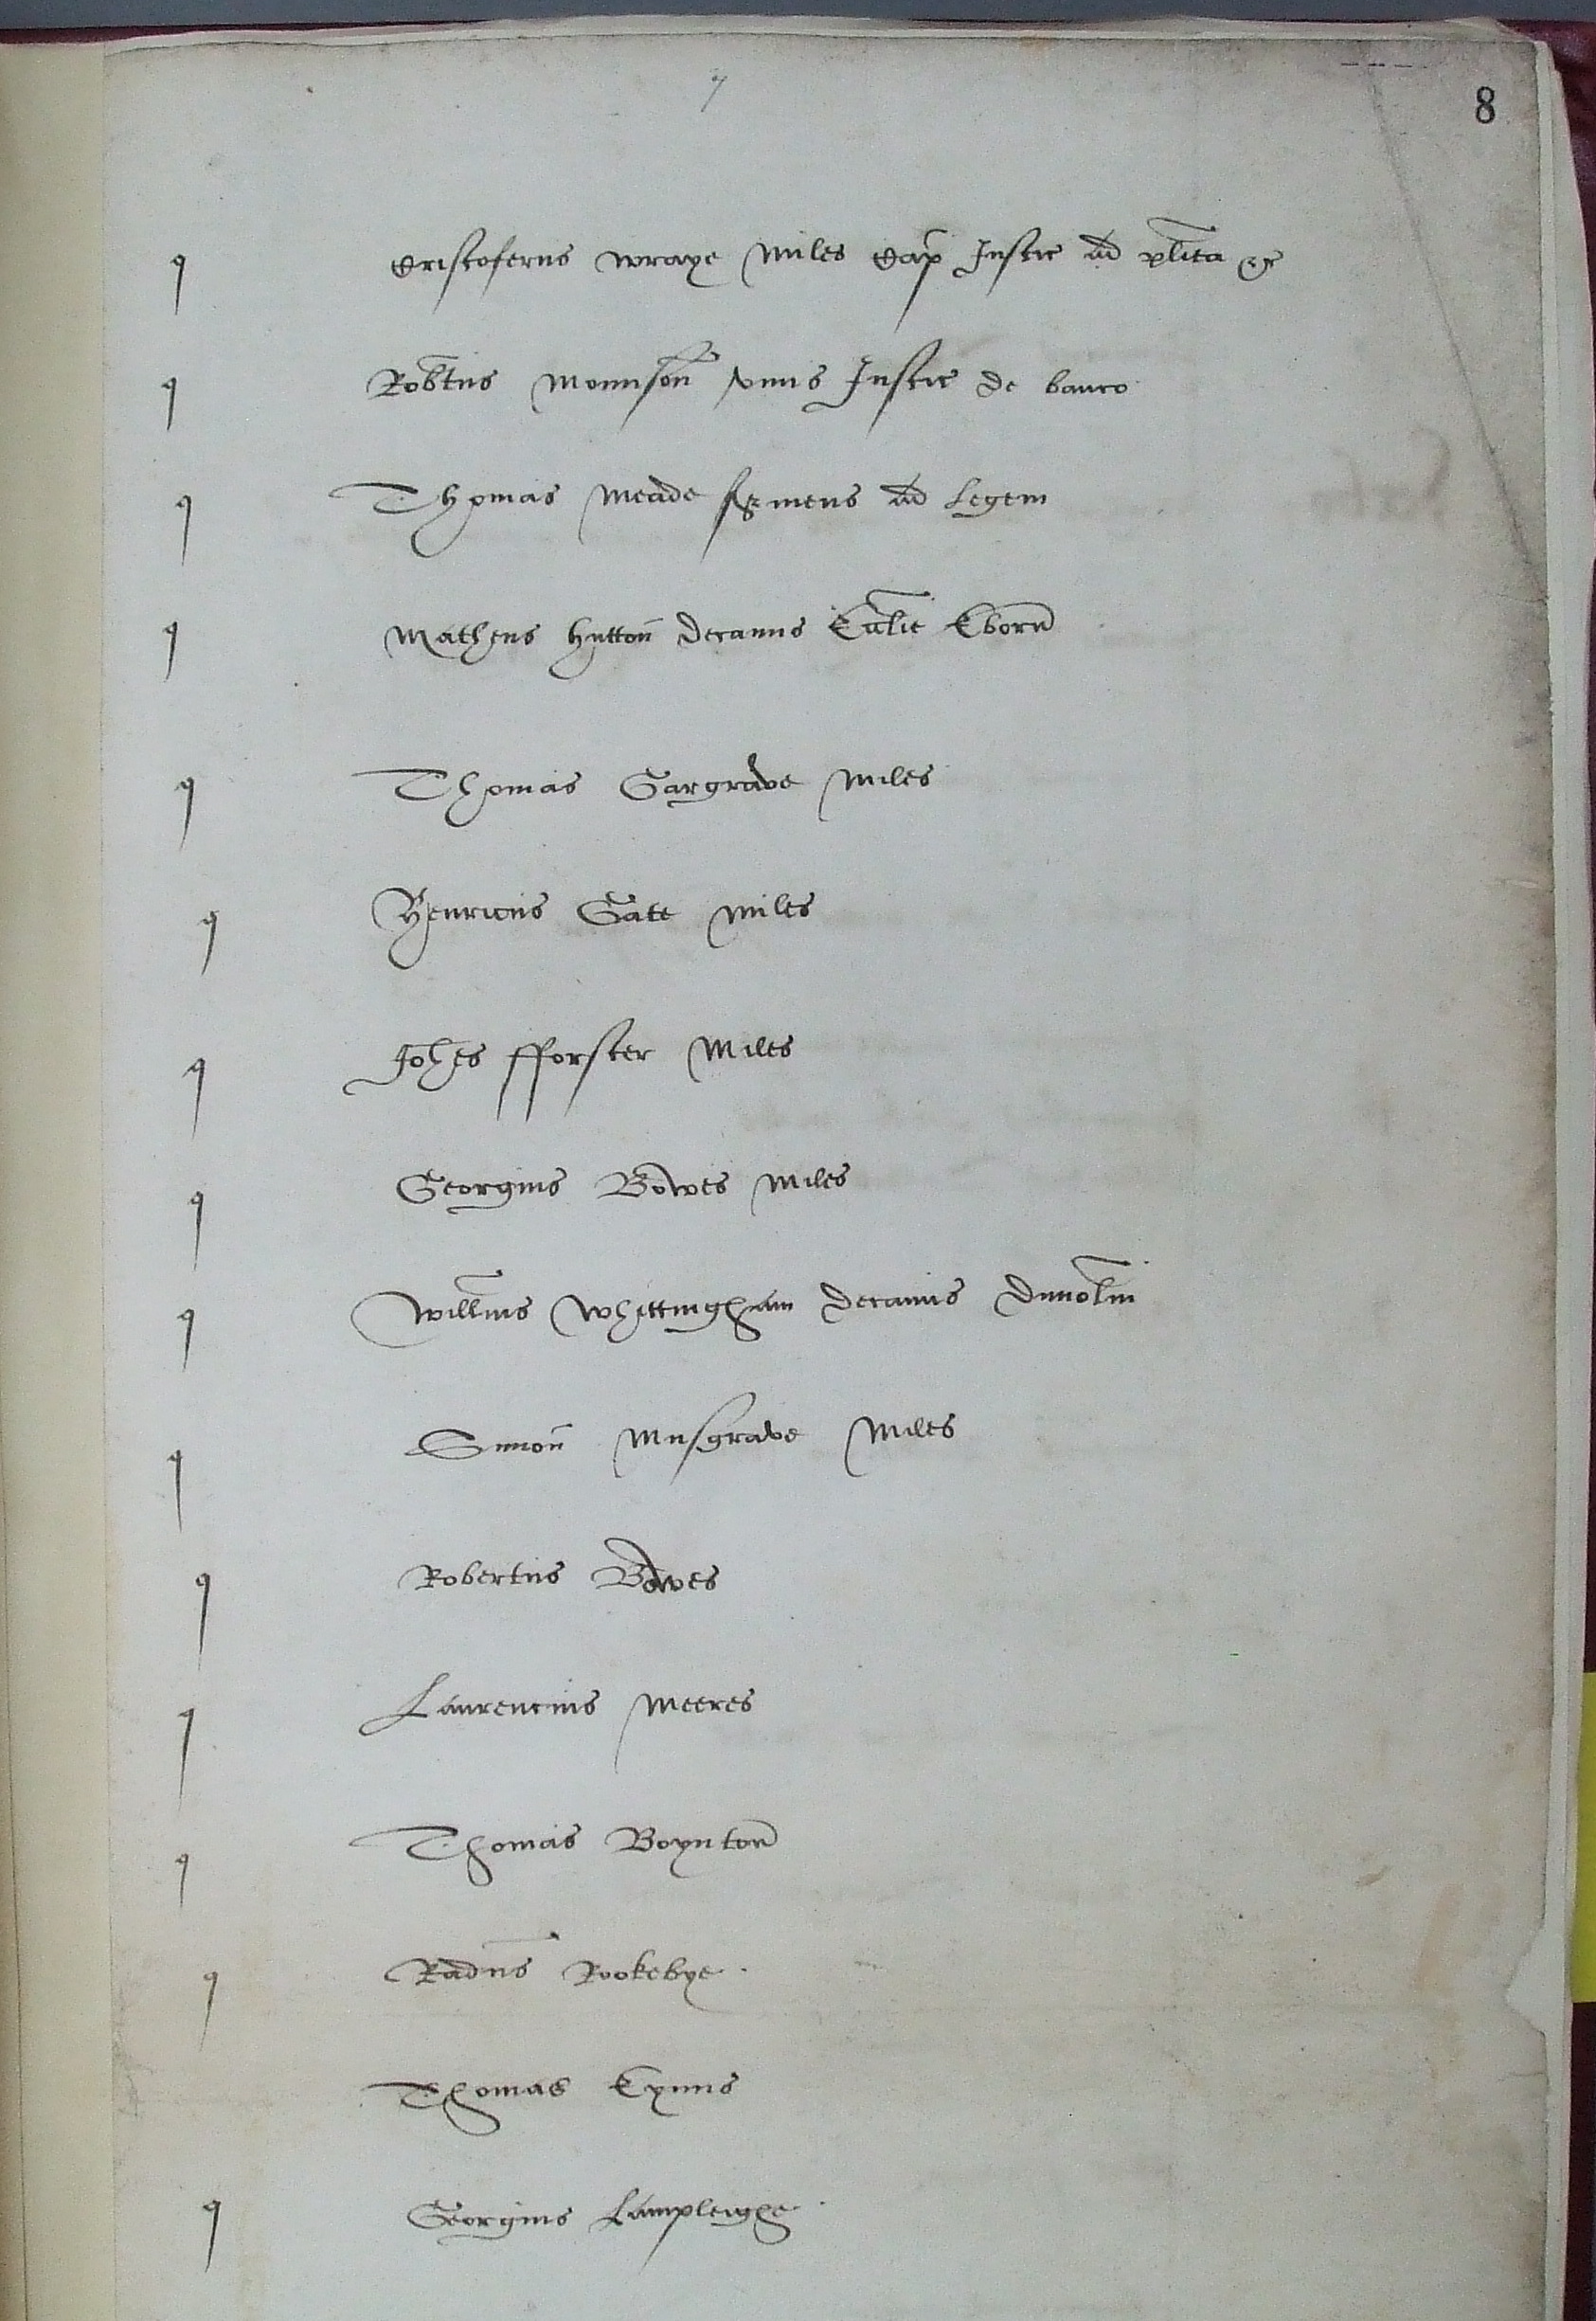 8
q Cristoferus Wraye Miles Cap Justic ad plita &c
q Robtus Mounson unus Justic de banco
q Thomas Meade s'viens ad Legem
q Matheus Hutton decanus Ecclie Ebor
q Thomas Gargrave Miles
q Henricus Gate Miles
q Johes fforster Miles
q Georgius Bowes Miles
q Willmus Whittingham decanus Dunolm
q Simon Musgrave Miles
q Robertus Bowes
q Laurencius Meeres
q Thomas Boynton
q Radus Rookebye
Thomas Eynns
q Georgius Lampleighe